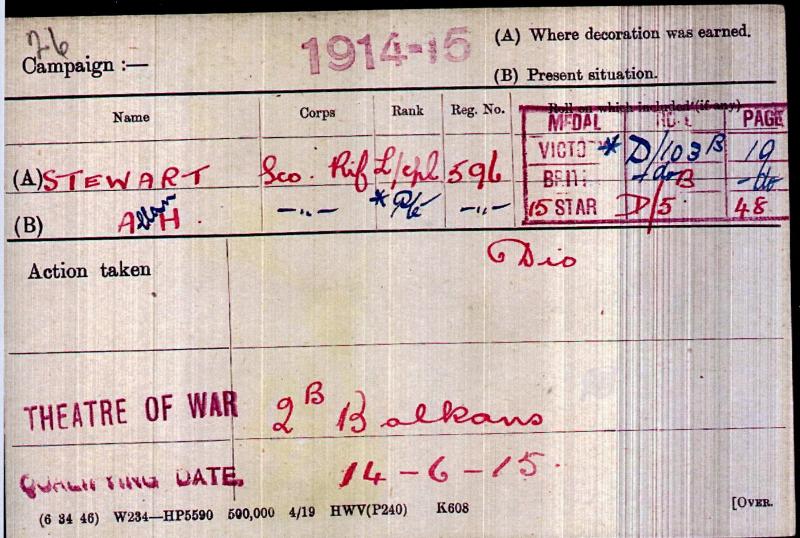 26
Campaign :— 1914-15
(A) Where decoration was earned.
(B) Present situation.
Name Corps Rank Reg. No. Roll on which included (if any)
MEDAL PAGE
(A) STEWART Sco. Rif L/cpl 596 VICTO * D/103 B 19
(B) Allan H. —"— * Pte —"— BRIT -do- B -do-
15 STAR D/5 48
Action taken Dis
THEATRE OF WAR 2B Balkans
QUALIFYING DATE. 14-6-15.
(6 34 46) W234—HP5590 500,000 4/19 HWV(P240) K608 [OVER.